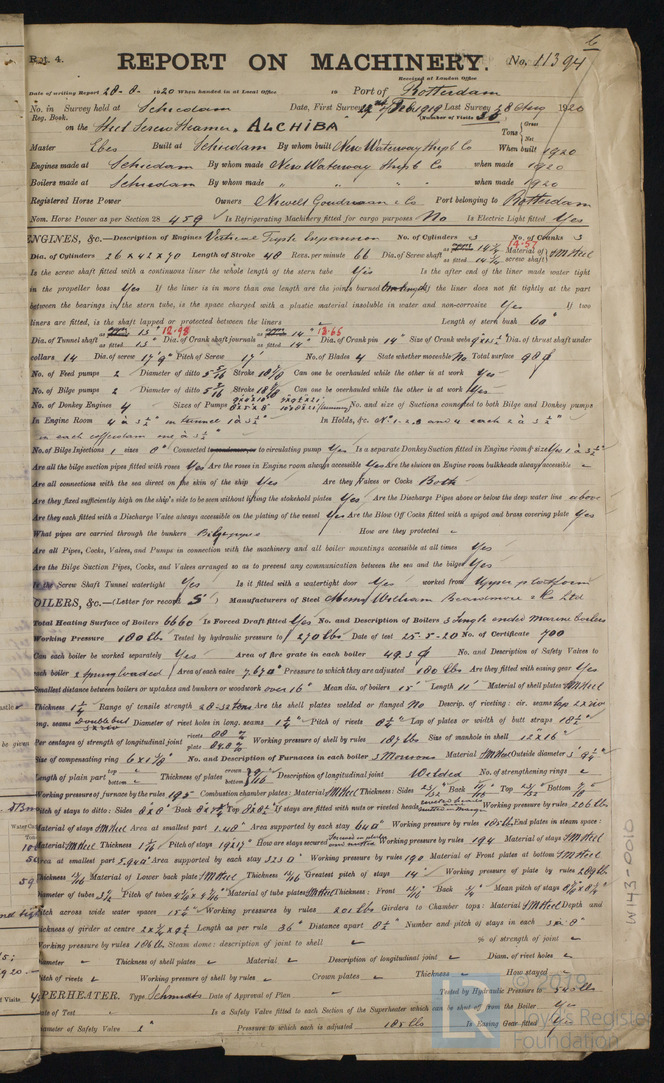 6
Rpt. 4.
REPORT ON MACHINERY. No. 11394
Received at London Office
Date of writing Report 28-8-1920 When handed in at Local Office 19 Port of Rotterdam
No. in Survey held at Schiedam Date, First Survey Feb 1919 Last Survey 28 Aug 1920
Reg. Book. (Number of Visits
on the Steel Screw Steamer, ALCHIBA Tons Gross Net
Master Ebes Built at Schiedam By whom built New Waterway Shipb Co When built 1920
Engines made at Schiedam By whom made New Waterway Shipb Co when made 1920
Boilers made at Schiedam By whom made " " " when made 1920
Registered Horse Power Owners Nievelt Goudriaan & Co Port belonging to Rotterdam
Nom. Horse Power as per Section 28 459 Is Refrigerating Machinery fitted for cargo purposes No Is Electric Light fitted Yes
ENGINES, &c.—Description of Engines Vertical Triple Expansion No. of Cylinders 3 No. of Cranks 3
Dia. of Cylinders 26 x 42 x 70 Length of Stroke 48 Revs. per minute 66 Dia. of Screw shaft as fitted 14 3/4 14.57 Material of screw shaft S M Steel
Is the screw shaft fitted with a continuous liner the whole length of the stern tube Yes Is the after end of the liner made water tight
in the propeller boss Yes If the liner is in more than one length are the joints burned If the liner does not fit tightly at the part
between the bearings in the stern tube, is the space charged with a plastic material insoluble in water and non-corrosive Yes If two
liners are fitted, is the shaft lapped or protected between the liners Length of stern bush 60"
Dia. of Tunnel shaft as fitted 13" Dia. of Crank shaft journals as fitted 14" Dia. of Crank pin 14" Size of Crank webs Dia. of thrust shaft under
collars 14 Dia. of screw 17'9" Pitch of Screw 17' No. of Blades 4 State whether moveable No Total surface 98
No. of Feed pumps 2 Diameter of ditto Stroke Can one be overhauled while the other is at work Yes
No. of Bilge pumps 2 Diameter of ditto Stroke Can one be overhauled while the other is at work Yes
No. of Donkey Engines 4 Sizes of Pumps No. and size of Suctions connected to both Bilge and Donkey pumps
In Engine Room 4 a 3 1/2" in tunnel 1 a 3 1/2" In Holds, &c. No 1. 2. 3 and 4 each 2 a 3 1/2"
in each cofferdam one a 3 1/2"
No. of Bilge Injections 1 sizes 8" Connected to circulating pump Yes Is a separate Donkey Suction fitted in Engine room & size Yes 1 a 3 1/2"
Are all the bilge suction pipes fitted with roses Yes Are the roses in Engine room always accessible Yes Are the sluices on Engine room bulkheads always accessible
Are all connections with the sea direct on the skin of the ship Yes Are they Valves or Cocks Both
Are they fixed sufficiently high on the ship's side to be seen without lifting the stokehold plates Yes Are the Discharge Pipes above or below the deep water line above
Are they each fitted with a Discharge Valve always accessible on the plating of the vessel Yes Are the Blow Off Cocks fitted with a spigot and brass covering plate Yes
What pipes are carried through the bunkers Bilge pipes How are they protected
Are all Pipes, Cocks, Valves, and Pumps in connection with the machinery and all boiler mountings accessible at all times Yes
Are the Bilge Suction Pipes, Cocks, and Valves arranged so as to prevent any communication between the sea and the bilges Yes
Is the Screw Shaft Tunnel watertight Yes Is it fitted with a watertight door Yes worked from Upper platform
BOILERS, &c.—(Letter for record S) Manufacturers of Steel Messrs William Beardmore & Co Ltd
Total Heating Surface of Boilers 6660 Is Forced Draft fitted Yes No. and Description of Boilers 3 Single ended Marine boilers
Working Pressure 180 lbs Tested by hydraulic pressure to 270 lbs Date of test 25-5-20 No. of Certificate 700
Can each boiler be worked separately Yes Area of fire grate in each boiler 49.3 No. and Description of Safety Valves to
each boiler 2 Spring loaded Area of each valve 7.67" Pressure to which they are adjusted 180 lbs Are they fitted with easing gear Yes
Smallest distance between boilers or uptakes and bunkers or woodwork over 16" Mean dia. of boilers 15' Length 11' Material of shell plates S M Steel
Thickness Range of tensile strength 28-32 tons Are the shell plates welded or flanged No Descrip. of riveting: cir. seams lap 2 x riv
long. seams Double but 3 x riv Diameter of rivet holes in long. seams 1 1/4" Pitch of rivets Lap of plates or width of butt straps 18 1/2"
Per centages of strength of longitudinal joint rivets plate Working pressure of shell by rules 187 lbs Size of manhole in shell 12" x 16"
Size of compensating ring No. and Description of Furnaces in each boiler 3 Morrison Material S M Steel Outside diameter
Length of plain part top bottom Thickness of plates crown bottom Description of longitudinal joint Welded No. of strengthening rings
Working pressure of furnace by the rules 195 Combustion chamber plates: Material S M Steel Thickness: Sides Back Top Bottom
Pitch of stays to ditto: Sides 8" x 8" Back Top If stays are fitted with nuts or riveted heads Working pressure by rules 206 lbs
Material of stays S M Steel Area at smallest part 1.48" Area supported by each stay 64" Working pressure by rules 185 lbs End plates in steam space:
Material S M Steel Thickness Pitch of stays How are stays secured Working pressure by rules 194 Material of stays S M Steel
Area at smallest part 5.940" Area supported by each stay Working pressure by rules 190 Material of Front plates at bottom S M Steel
Thickness Material of Lower back plate S M Steel Thickness Greatest pitch of stays 14" Working pressure of plate by rules 209 lbs
Diameter of tubes 3 1/4 Pitch of tubes Material of tube plates S M Steel Thickness: Front Back Mean pitch of stays
Pitch across wide water spaces Working pressures by rules 201 lbs Girders to Chamber tops: Material S M Steel Depth and
thickness of girder at centre Length as per rule 36" Distance apart 8 1/2" Number and pitch of stays in each 3 a 8"
Working pressure by rules 186 lbs Steam dome: description of joint to shell % of strength of joint
Diameter Thickness of shell plates Material Description of longitudinal joint Diam. of rivet holes
Pitch of rivets Working pressure of shell by rules Crown plates Thickness How stayed
SUPERHEATER. Type Schmidts Date of Approval of Plan Tested by Hydraulic Pressure to 540 lbs
Date of Test Is a Safety Valve fitted to each Section of the Superheater which can be shut off from the Boiler Yes
Diameter of Safety Valve 2" Pressure to which each is adjusted 185 lbs Is Easing Gear fitted Yes
W143-0010
© 2019
Lloyd's Register
Foundation
LR